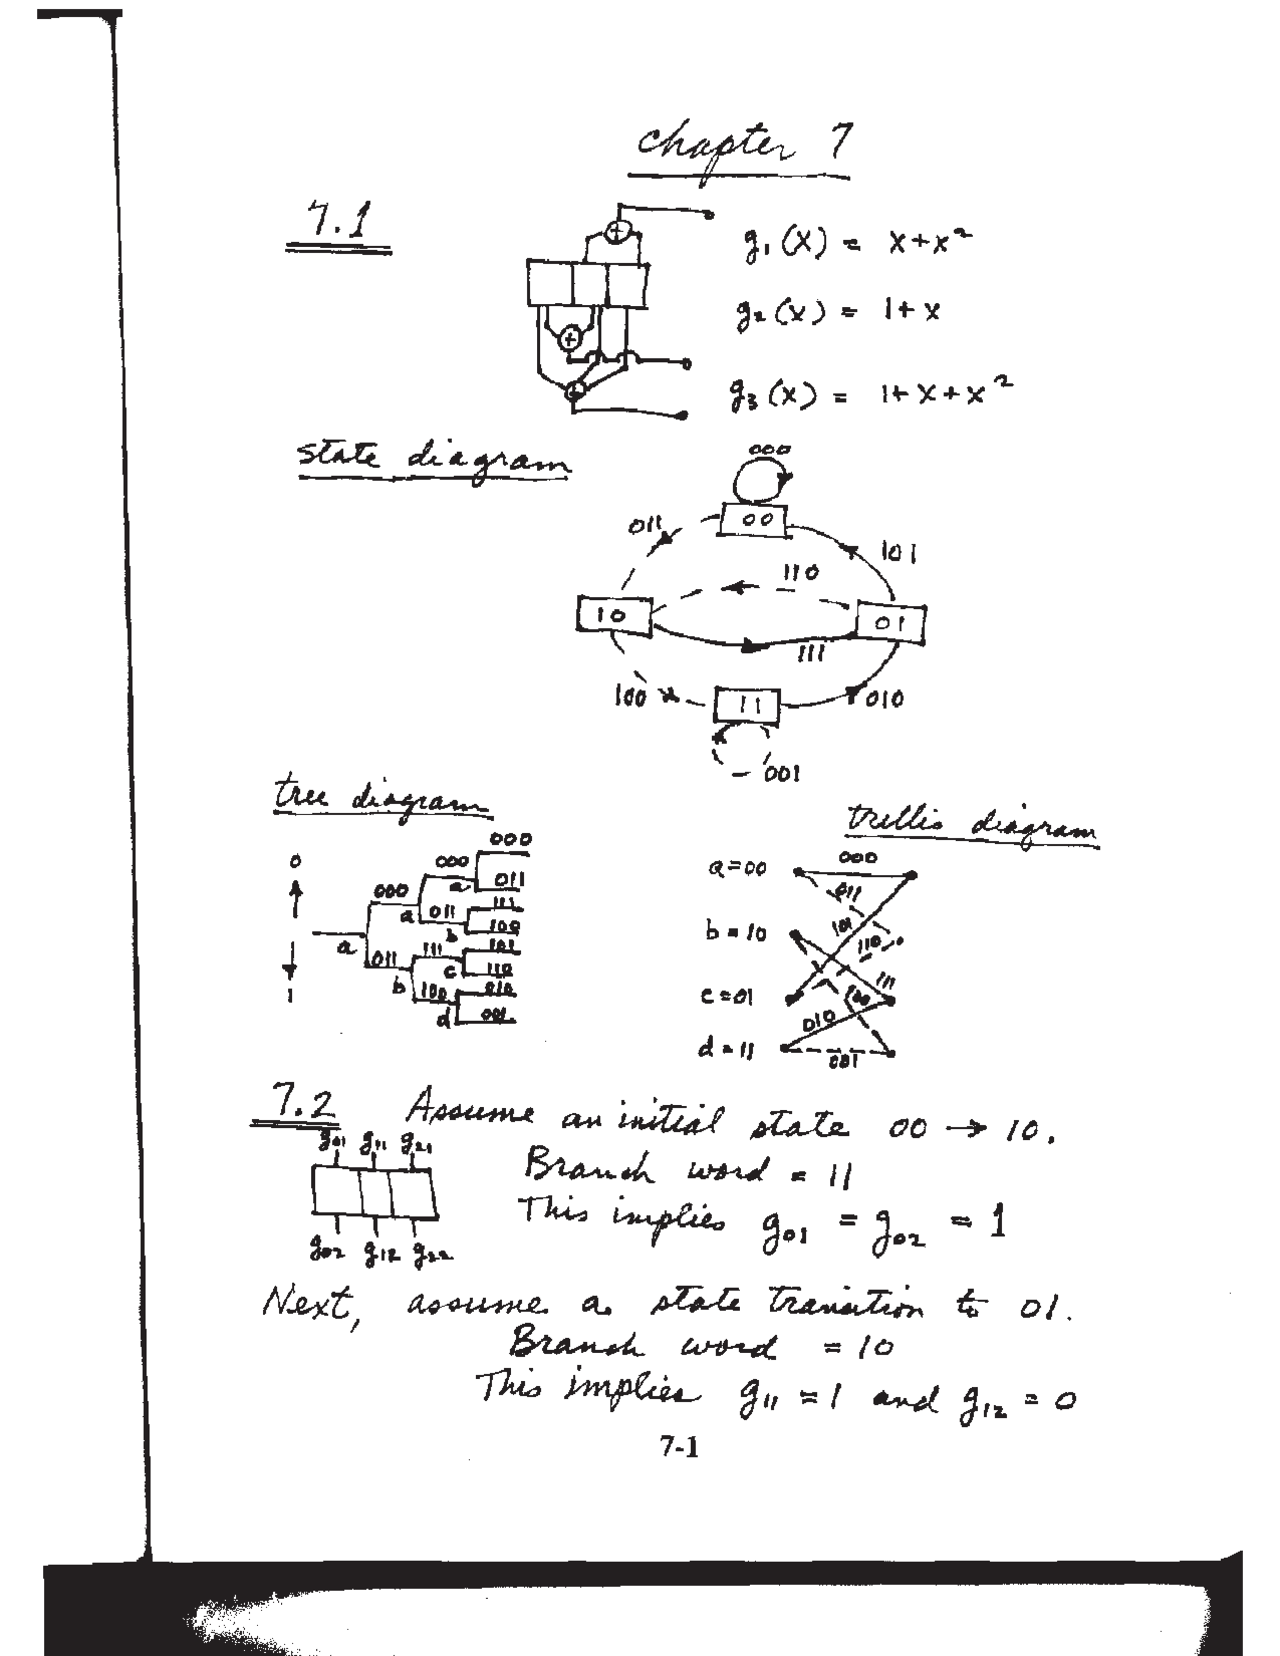 chapter 7
7.1
g₁(x) = x+x²
g₂(x) = 1+x
g₃(x) = 1+x+x²
state diagram
000
00
011
101
110
10
01
111
100
11
010
001
tree diagram
trellis diagram
0
1
000
000
000
011
a
a
a
011
111
100
b
011
111
101
110
b
c
100
010
001
d
a=00
000
011
b=10
101
110
c=01
111
100
d=11
010
001
7.2 Assume an initial state 00 → 10.
g₀₁ g₁₁ g₂₁
Branch word = 11
This implies g₀₁ = g₀₂ = 1
g₀₂ g₁₂ g₂₂
Next, assume a state transition to 01.
Branch word = 10
This implies g₁₁ = 1 and g₁₂ = 0
7-1